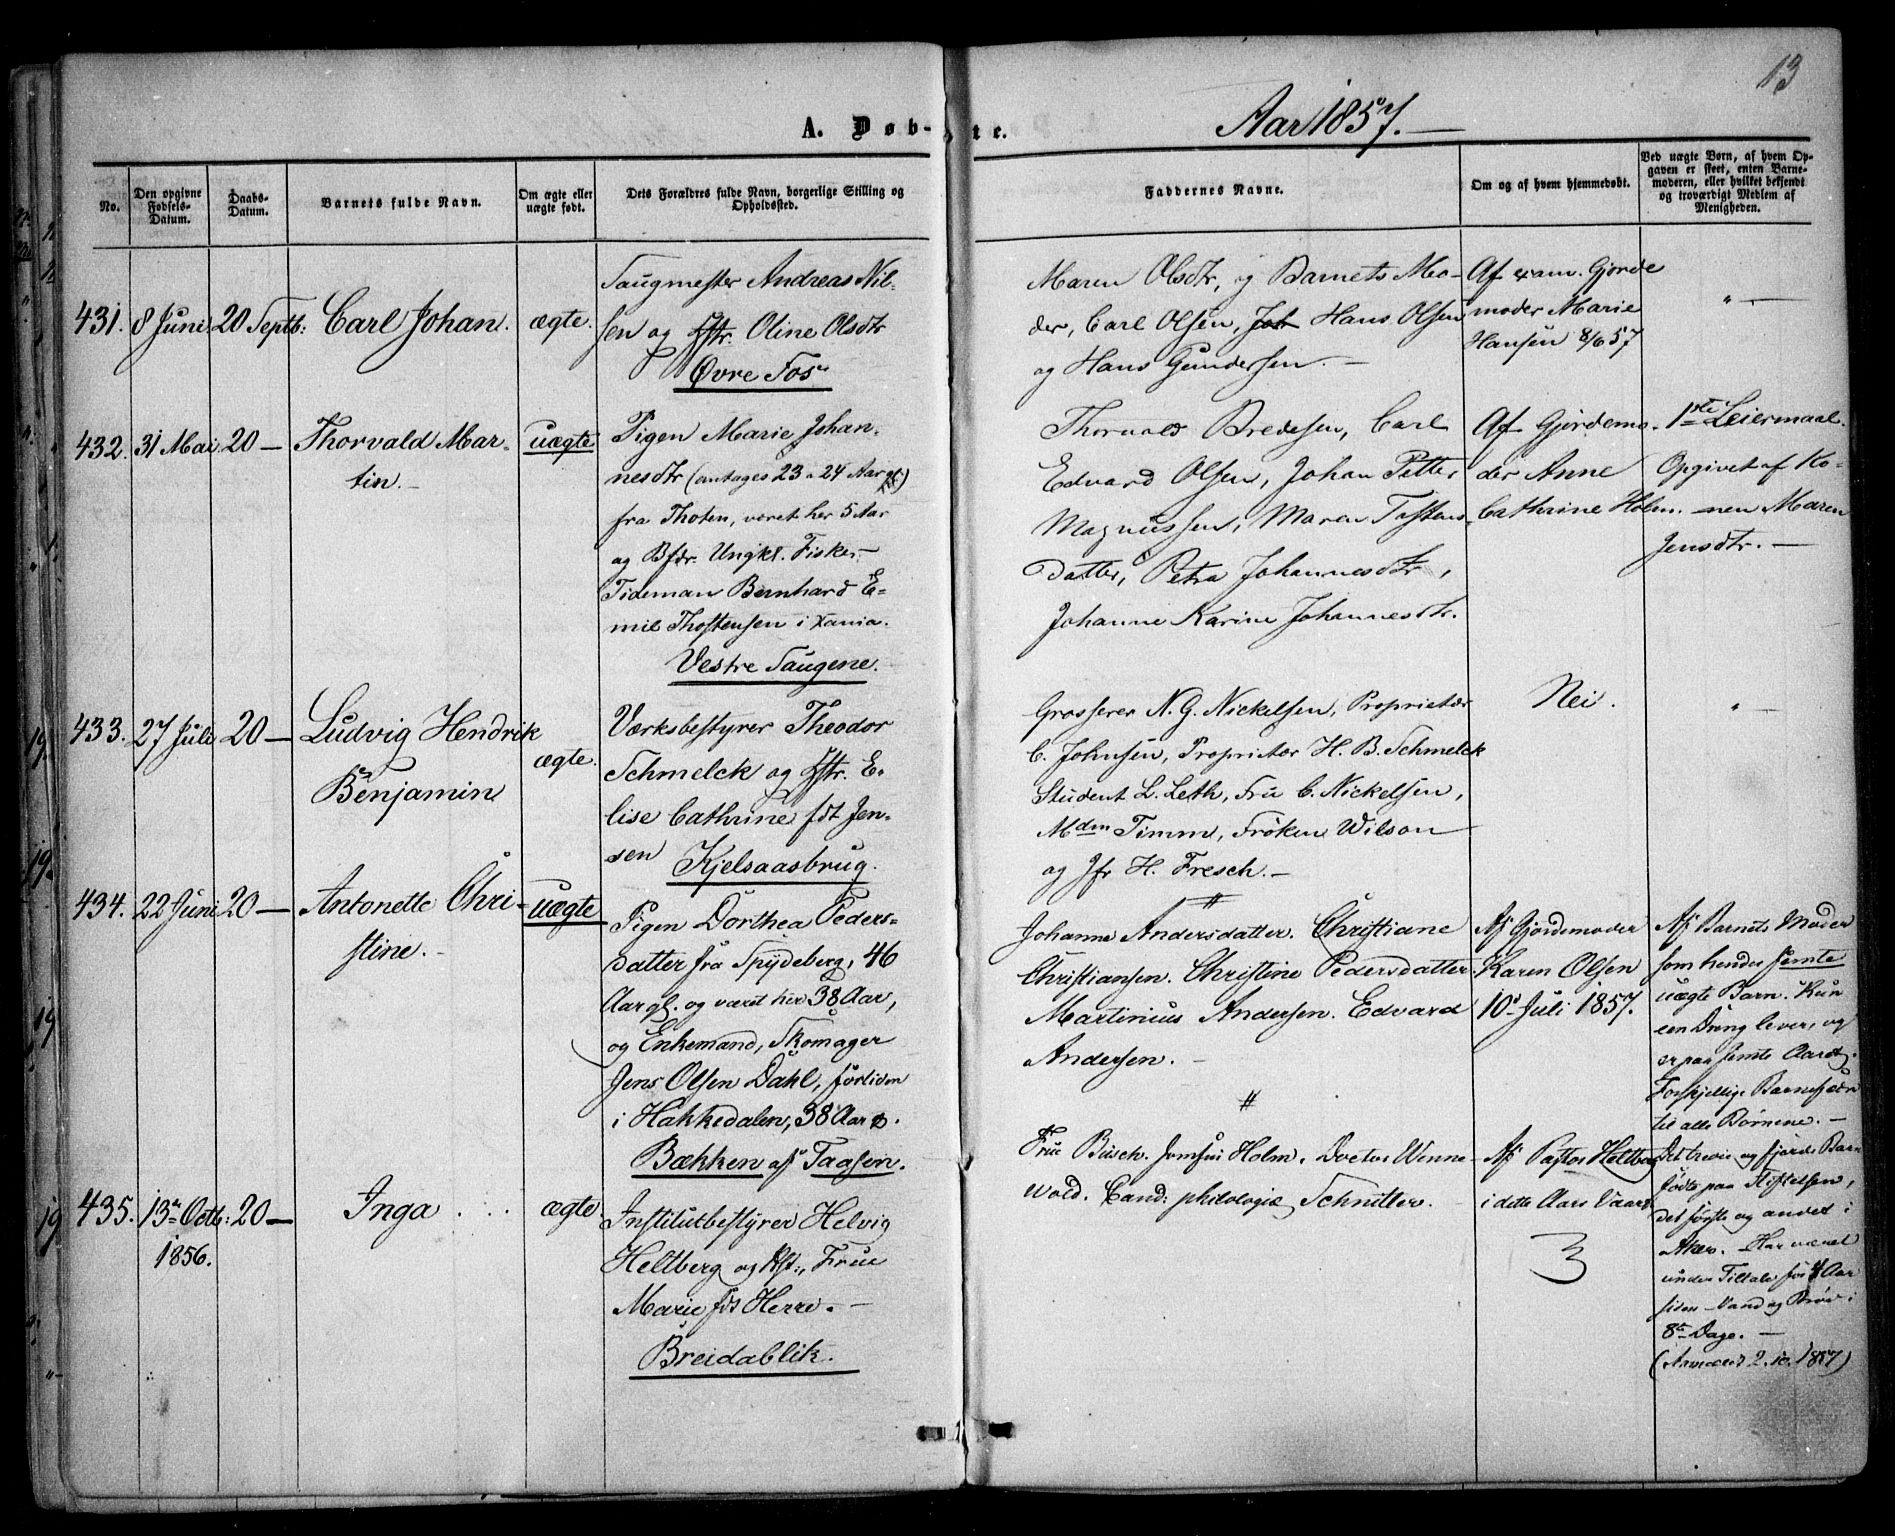 13
A. Døb-te.
Aar 1857.
No.
Den opgivne Fødsels-Datum.
Daabs-Datum.
Barnets fulde Navn.
Om ægte eller uægte født.
Dets Forældres fulde Navn, borgerlige Stilling og Opholdssted.
Faddernes Navne.
Om og af hvem hjemmedøbt.
Ved uægte Børn, af hvem Opgaven er skeet, enten Barnemoderen, eller hvilket bekjendt og troværdigt Medlem af Menigheden.
431. 8 Juni 20 Septb: Carl Johan. ægte.
Saugmester Andreas Nil-
sen og Hstr. Oline Olsdtr
Øvre Fos
Maren Olsdtr, og Barnets Mo-
der, Carl Olsen, Hans Olsen
og Hans Gundersen.
Af exam. Gjorde
moder Marie
Hansen 8/6 57
" —
432. 31 Mai 20 — Thorvald Mar-
tin. —
uægte
Pigen Marie Johan-
nesdtr (antages 23 a 24 Aar gl.)
fra Thoten, været her 5 Aar
og Bfdr. Ungkl. Fisker
Tideman Bernhard E-
mil Thostensen i Xania.
Vestre Saugene.
Thorvald Bredesen, Carl
Edvard Olsen, Johan Petter
Magnussen, Maren Tostens-
Datter, Petra Johannesdtr,
Johanne Karine Johannesdtr.
Af Gjordemo-
der Anne
Cathrine Holm.
1ste Leiermaal.
Opgivet af Ko-
nen Maren
Jensdtr. —
433. 27 Juli 20 — Ludvig Hendrik
Benjamin
ægte.
Værksbestyrer Theodor
Schmelck og Hstr. E-
lise Cathrine fdt Jen-
sen Kjelsaasbrug.
Grosserer N. G. Nickelsen, Proprietær
C. Johnsen, Proprietær H. B. Schmelck
Student L. Leth, Fru C. Nickelsen,
Mdm Timm, Frøken Wilson
og Jfr H. Fresch. —
Nei.
"
434. 22 Juni 20 — Antonette Chri-
stine. —
uægte
Pigen Dorthea Peders-
datter fra Spydeberg, 46
Aar gl. og været her 38 Aar,
og Enkemand, Skomager
Jens Olsen Dahl, fortiden
i Hakkedalen, 38 Aar
Bækken af Taasen.
Johanne Andersdatter. Christiane
Christiansen. Christine Pedersdatter.
Martinius Andersen. Edvard
Andersen. —
Af Gjordemoder
Karen Olsen
10 Juli 1857.
Af Barnets Moder
som hendes femte
uægte Barn. Kun
een Dreng lever, og
er paa femte Aaret.
Forskjellige Barnefædre
til alle Børnene. —
Det tredie og fjerde Barn
fødte paa Stiftelsen,
det første og andet i
Aker. Har været
under Tiltale for 4 Aar
siden – Vand og Brød i
8te Dage. —
(Anmeldt 2. 10. 1857)
435. 13de Octb: 20 — Inga . . . ægte.
1856.
Institutbestyrer Helvig
Heltberg og Hst:, Frue
Marie fdt Herre. —
Breidablik.
Frue Busch. Jomfru Holm. Doctor Winne-
wold. Cand: philologiæ Schnitler.
Af Pastor Heltberg
i dette Aars Vaar.
3